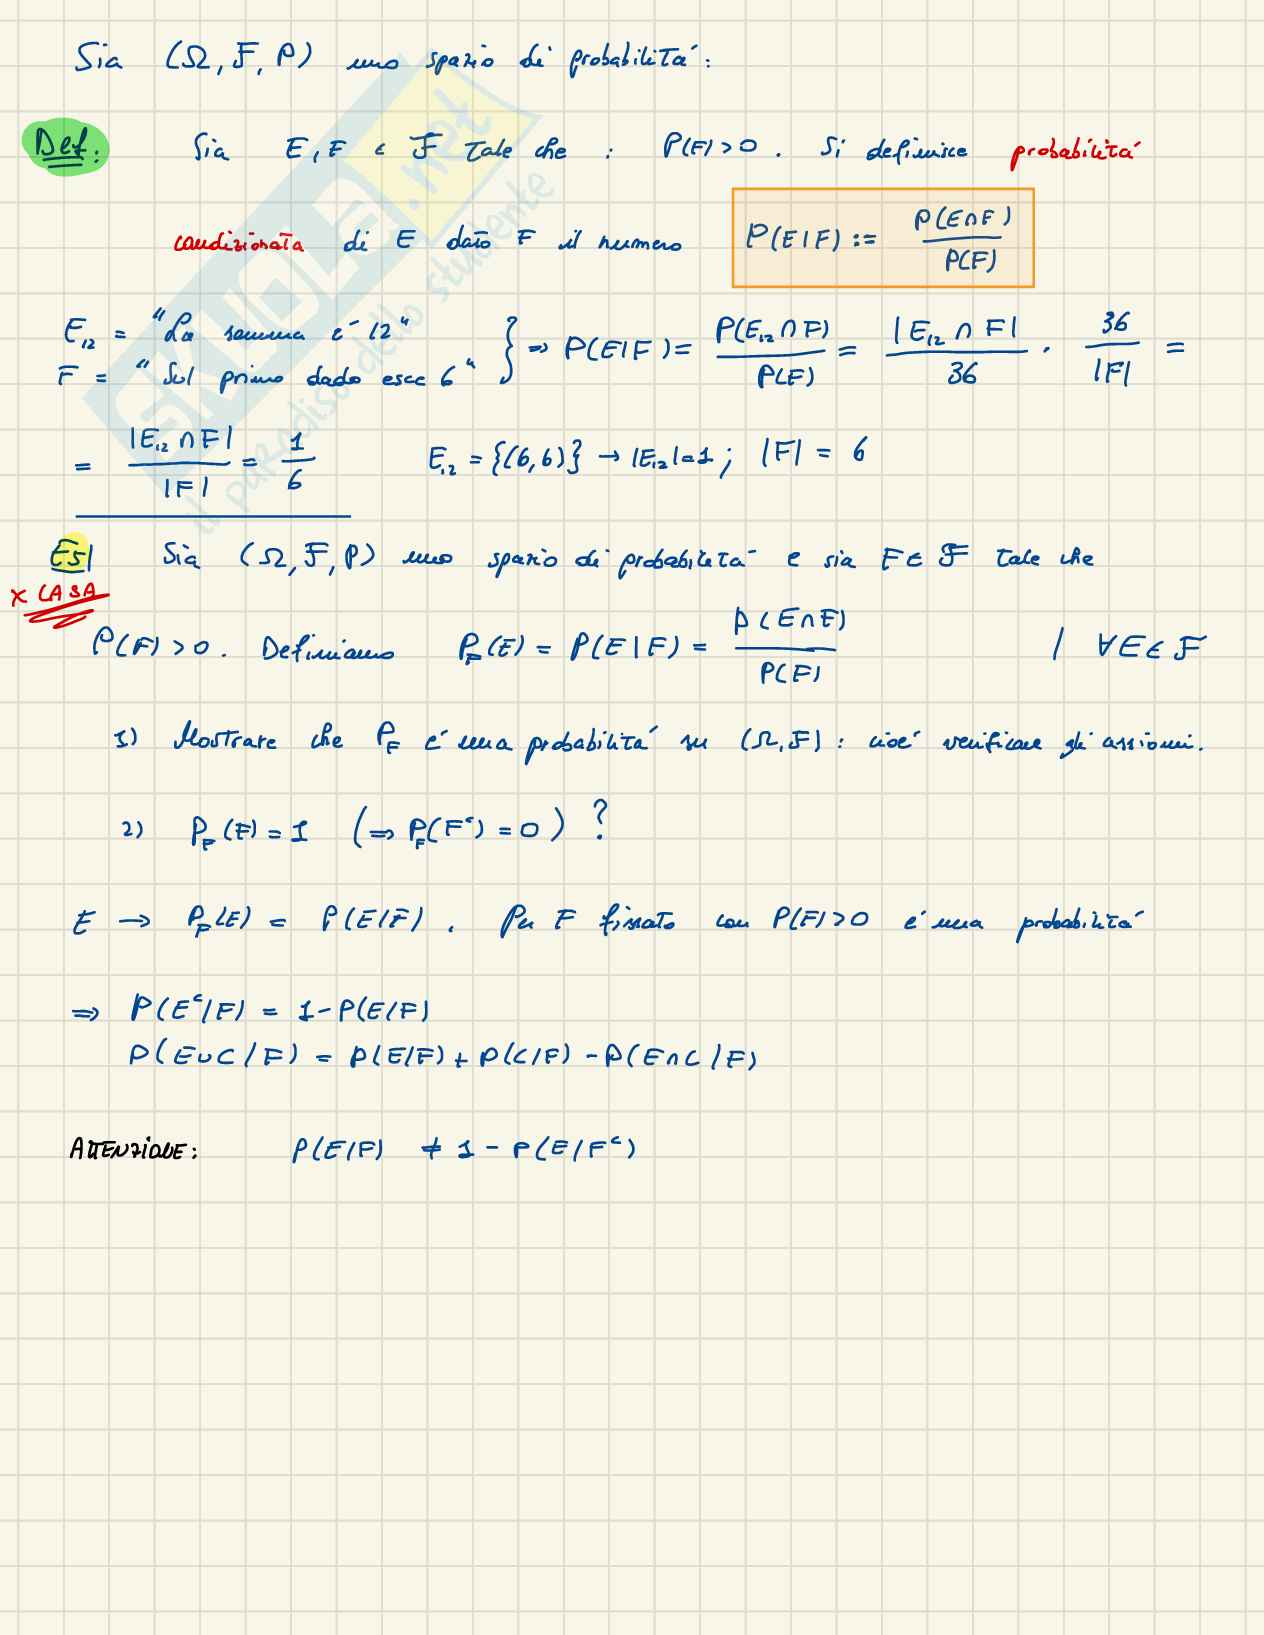 Sia (Ω, F, P) uno spazio di probabilitá:
Def: Sia E, F ∈ F tale che : P(F) > 0. Si definisce probabilitá
condizionata di E dato F il numero P(E|F) := P(E∩F) / P(F)
E₁₂ = "La somma é 12"
F = "Sul primo dado esce 6" } ⇒ P(E|F) = P(E₁₂ ∩ F) / P(F) = |E₁₂ ∩ F| / 36 · 36 / |F| =
= |E₁₂ ∩ F| / |F| = 1 / 6 E₁₂ = {(6,6)} → |E₁₂| = 1 ; |F| = 6
Es| Sia (Ω, F, P) uno spazio di probabilitá e sia F ∈ F tale che
x CASA
P(F) > 0. Definiamo P_F(E) = P(E|F) = P(E∩F) / P(F) | ∀E ∈ F
1) Mostrare che P_F é una probabilitá su (Ω, F) : cioé verificare gli assiomi.
2) P_F(F) = 1 (⇒ P_F(Fᶜ) = 0) ?
E → P_F(E) = P(E/F). Per F fissato con P(F) > 0 é una probabilitá
⇒ P(Eᶜ/F) = 1 - P(E/F)
P(E∪C/F) = P(E/F) + P(C/F) - P(E∩C/F)
ATTENZIONE: P(E/F) ≠ 1 - P(E/Fᶜ)
SKUOLA.net
il paradiso dello studente